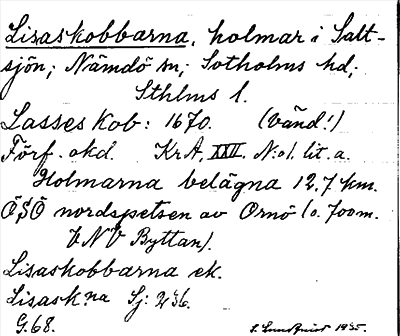 Lisaskobbarna, holmar i Salt-
sjön; Nämdö sn; Sotholms hd;
Sthlms l.
Lasses kob: 1670. (vänd!)
Förf. okd. KrA, XXII. N:o 1. lit. a.
Holmarna belägna 12.7 km.
ÖSÖ nordspetsen av Ornö (o. 700 m.
VNV Byttan).
Lisaskobbarna ek.
Lisask:na Sj: 236.
G.68. 1935.